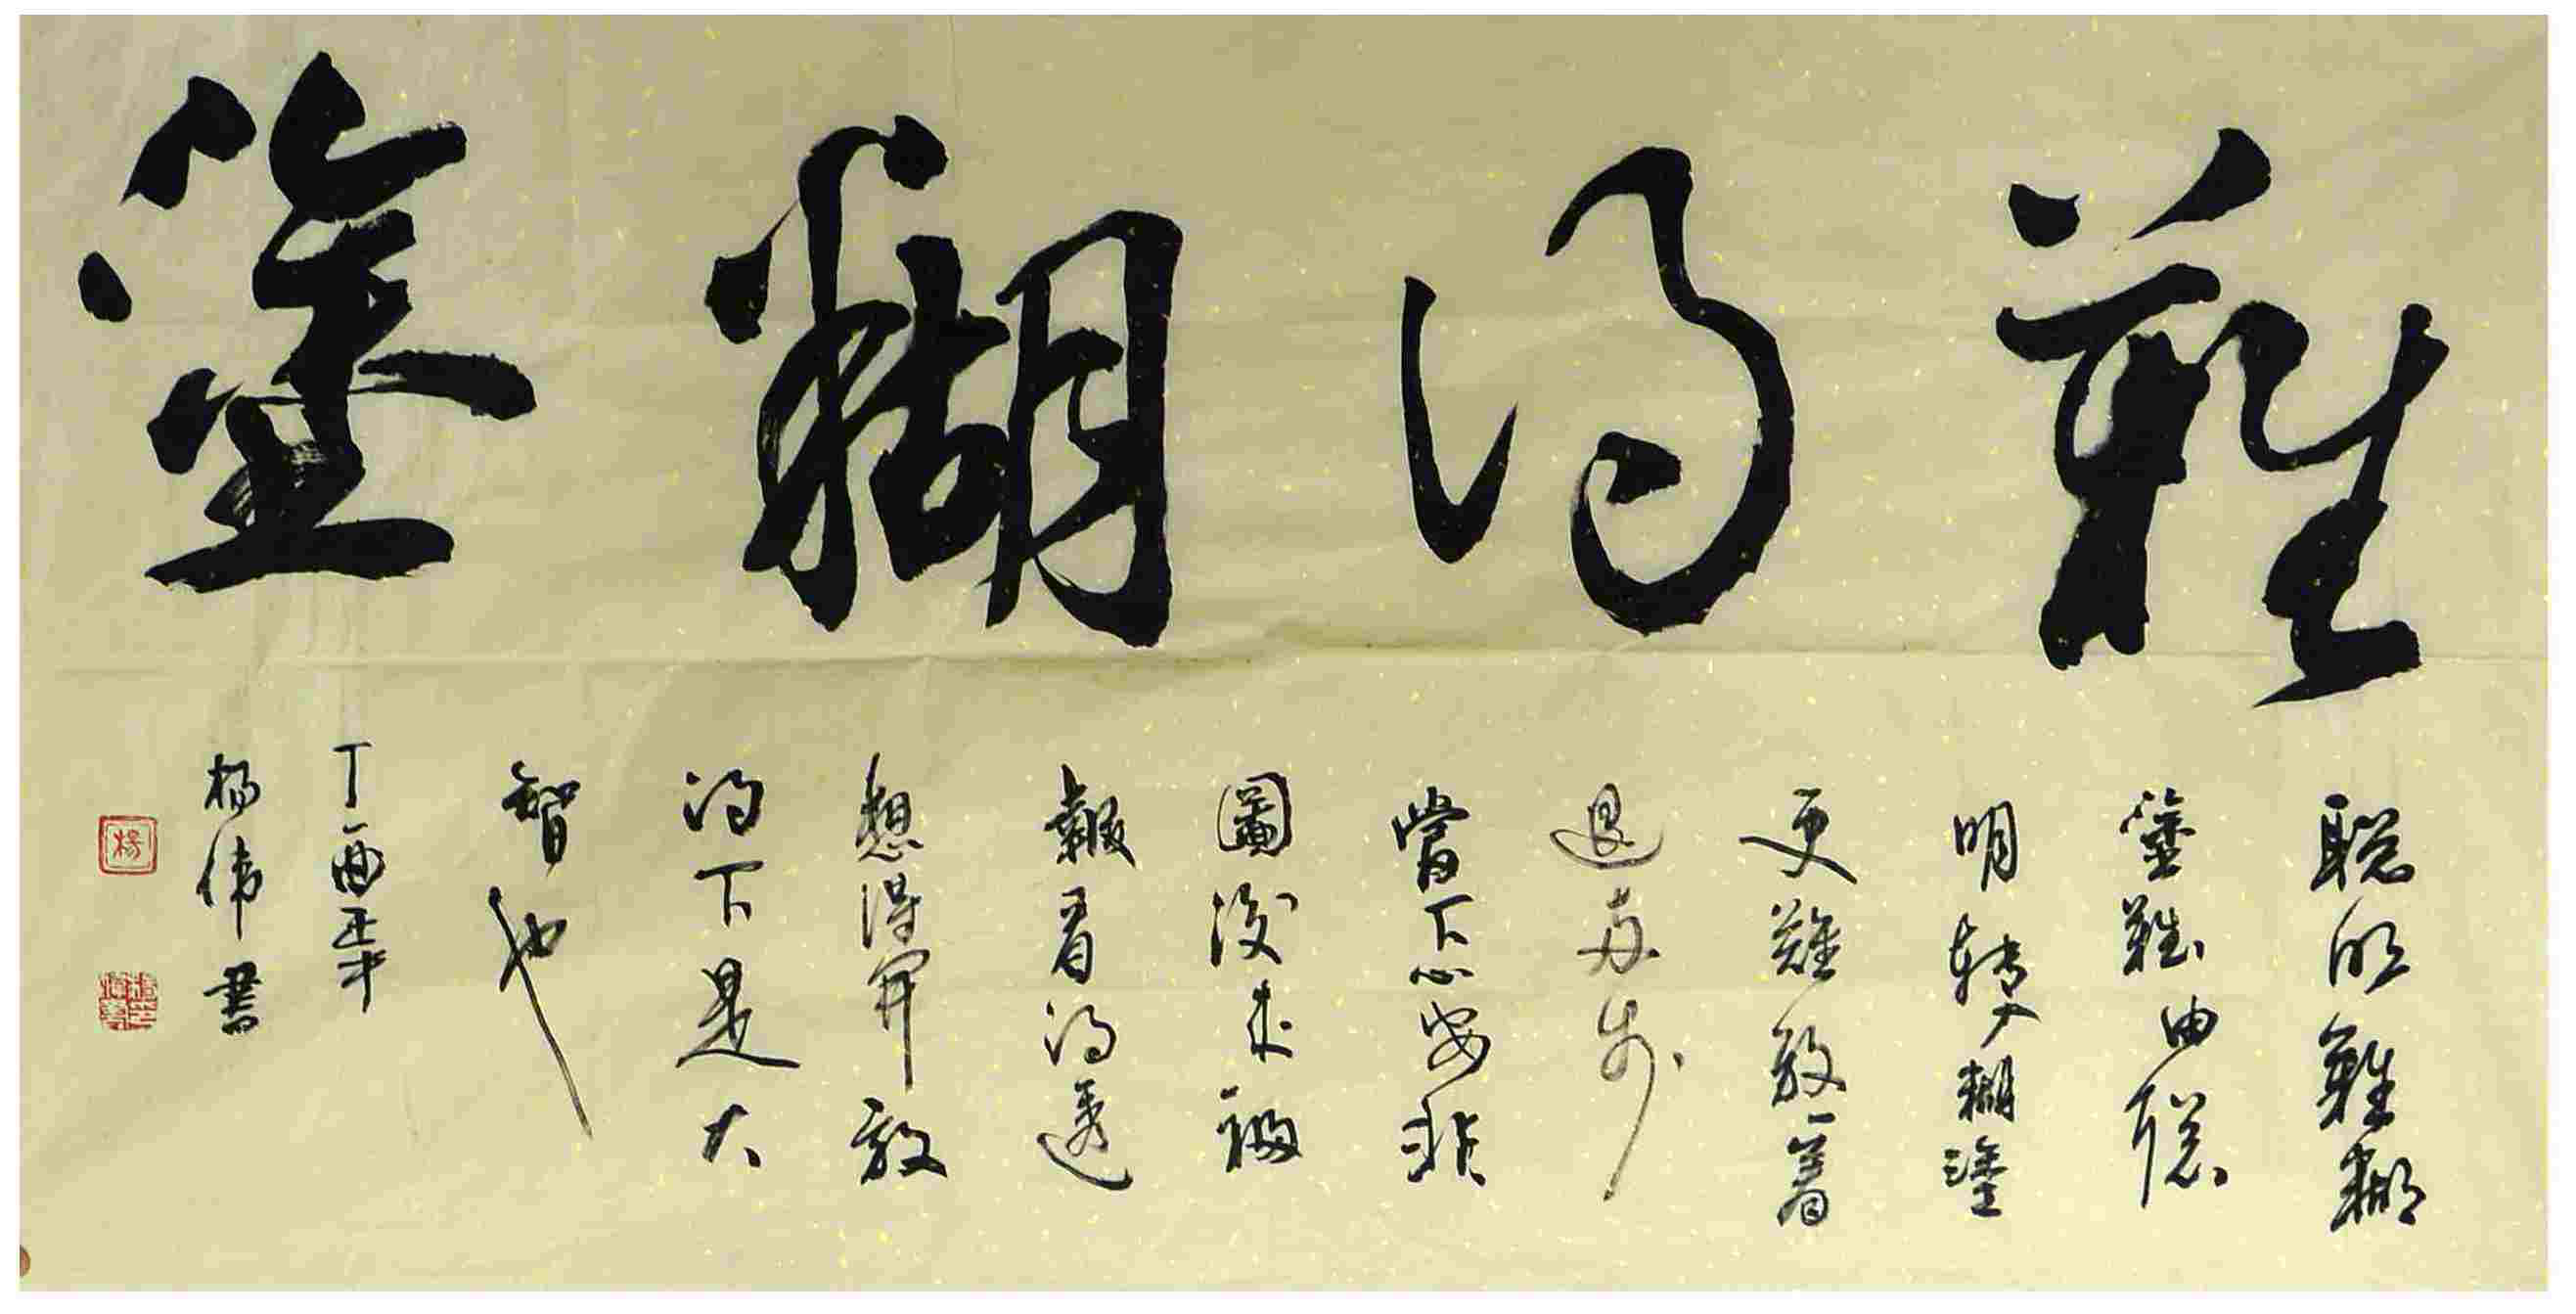 難得糊塗
聪明難糊
塗難由聰
明轉入糊塗
更難放一著
退一步
當下心安非
圖後来福
報看得透
想得開放
得下是大
智也
丁酉正年
楊偉書
楊